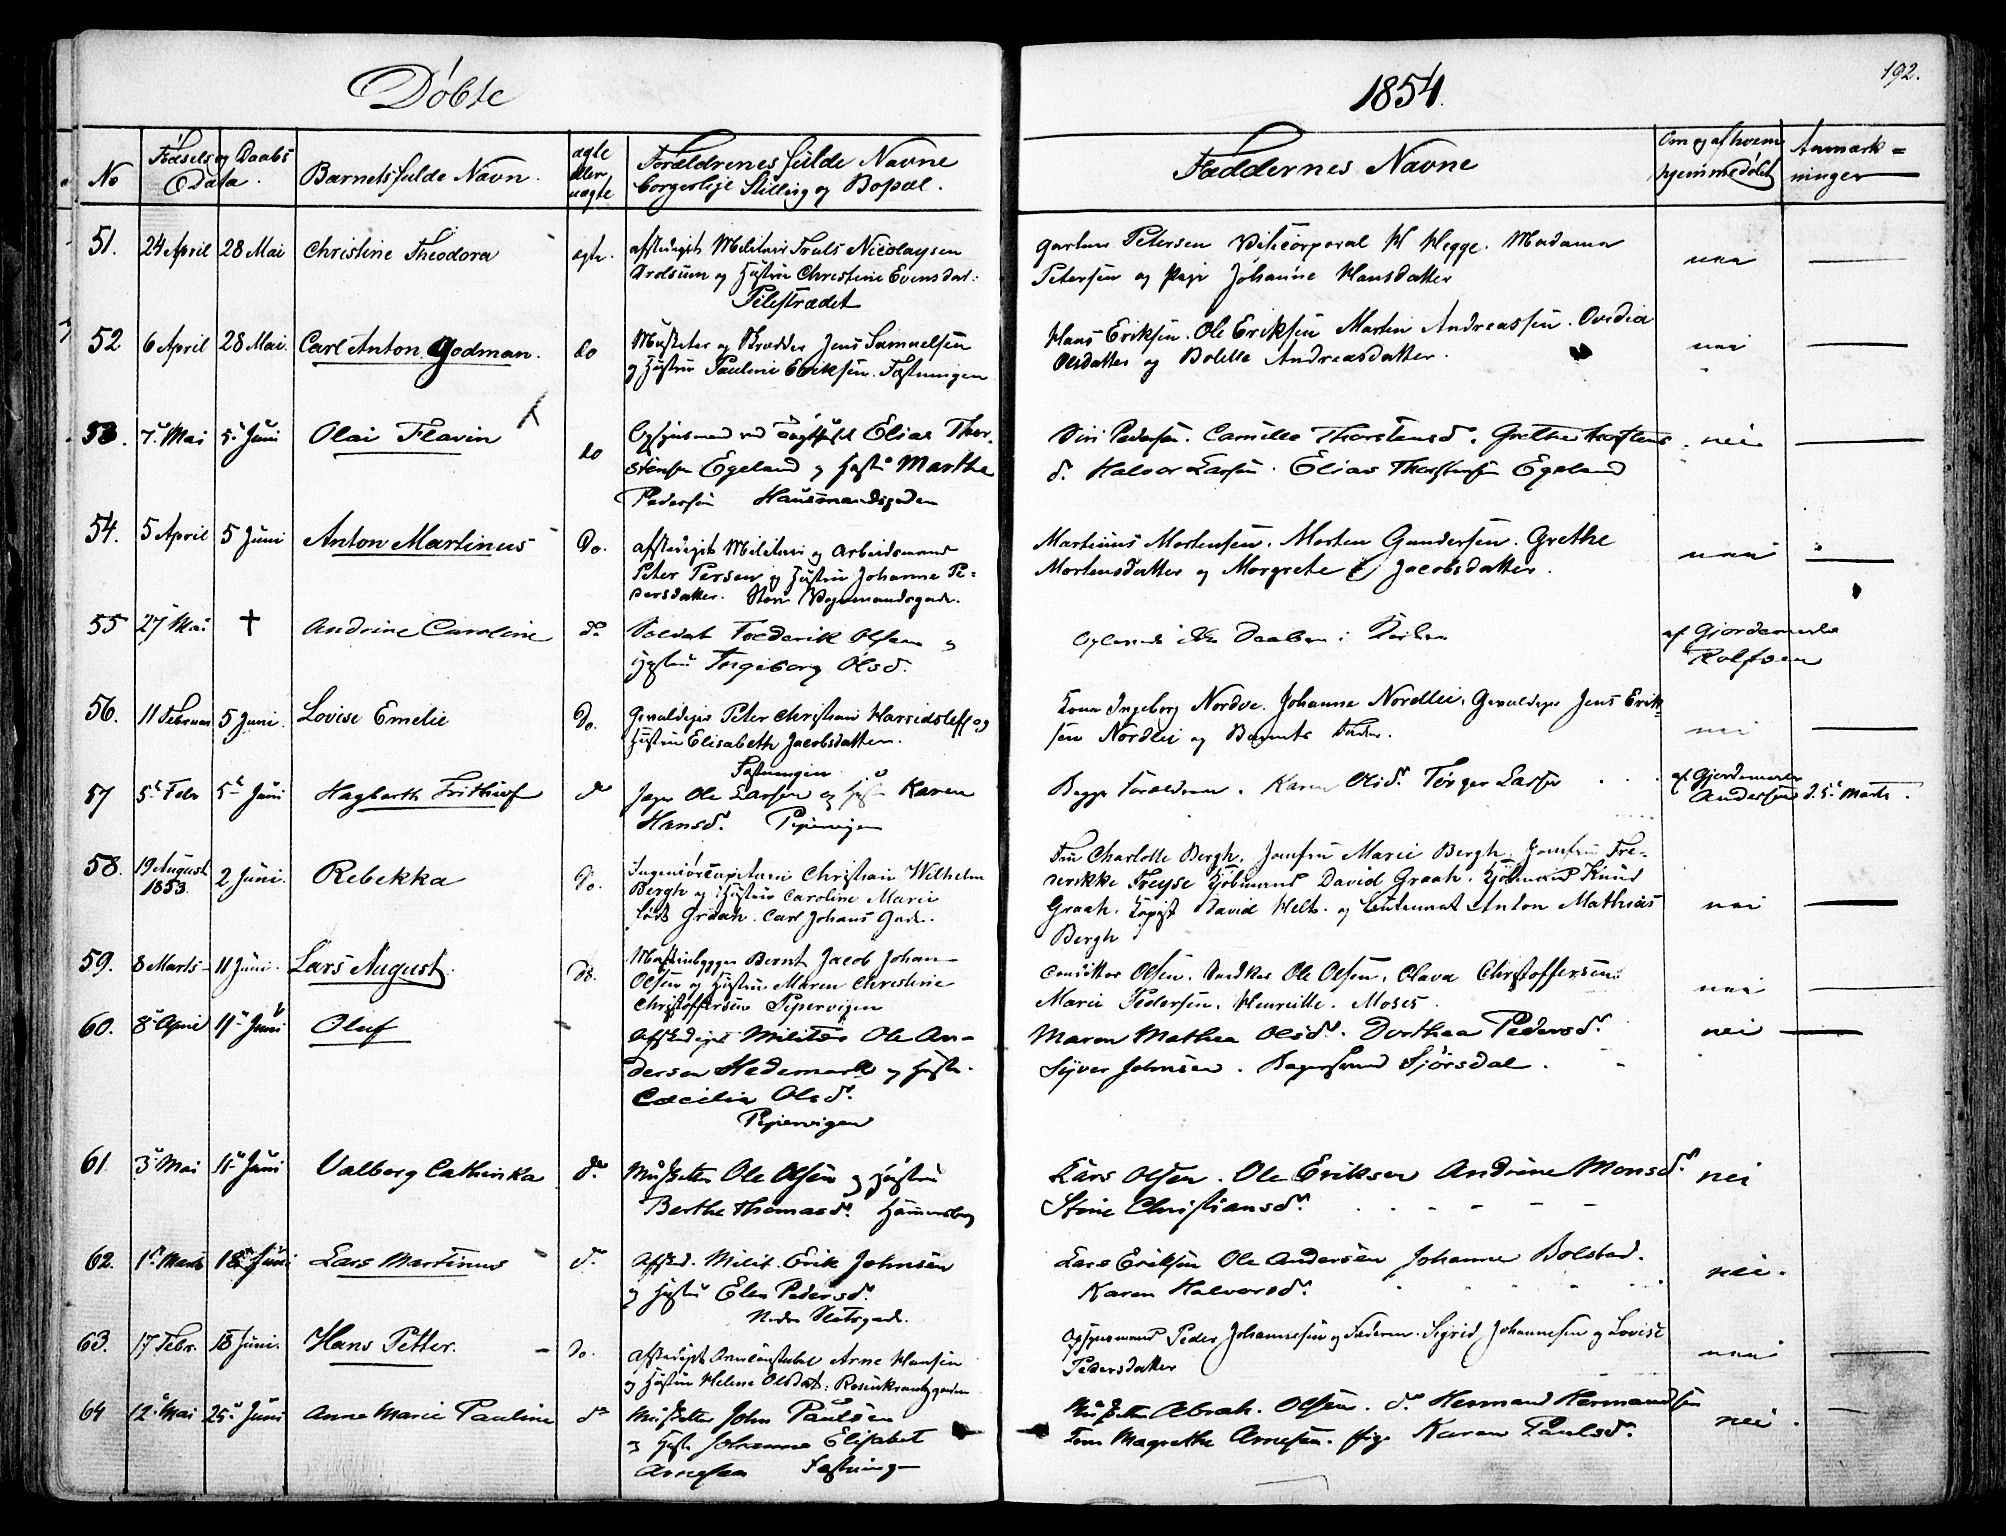 Døbte
1854.
192.
No
Fødsels og Daabs
Data.
Barnets fulde Navn.
ægte
eller
uægte
Forældrenes fulde Navne
borgerlige Stilling og Bopæl.
Faddernes Navne
Om og af hvem
hjemmedøbt
Anmærk=
ninger
51. 24 April 28 Mai Christine Theodora ægte.
afskediget Militair Truls Nicolaysen
og Hustru Christine Evensdat:
Pilestrædet
Petersen Vicecorporal H Hegge. Madame
Petersen og Pige Johanne Hansdatter
nei
52 6 April 28 Mai. Carl Anton Godman. do
Musketer og Skrædder Jens Samuelsen
og Hustru Pauline Eriksen. Fæstningen
Hans Eriksen. Ole Eriksen Martin Andreassen. Ovidia
Olsdatter og Bolette Andreasdatter.
nei
53. 7 Mai 5 Juni Olai Flavin do
Opsynsmand ved Elias Thor-
stensen Egeland og Hustru Marthe
Pedersen Hausmandsgaden
Siri Pedersen. Camilla Thorstensd. Grethe Thorstens
d. Halvor Larsen. Elias Thorstensen Egeland
nei
54. 5 April 5 Juni Anton Martinus Do.
afskediget Militair og Arbeidsmand
Peter Persen og Hustru Johanne Pe-
dersdatter. Store Vognmandsgade.
Martinus Mortensen. Morten Gundersen. Grethe
Mortensdatter og Margrete Jacobsdatter.
nei
55 27 Mai † Andrine Caroline do
Soldat Frederik Olsen og
Hustru Ingeborg Olsd.
Oplevede ikke Daaben i Kirken
af Gjordemoder
Rolfsen
56. 11 Februar 5 Juni. Lovise Emelie Do.
Gevaldiger Peter Christian Harridsleff og
Hustru Elisabeth Jacobsdatter.
Fæstningen
Kone Ingeborg Nordve. Johanne Nordlei. Gevaldiger Jens Erik-
sen Nordlei og Barnets Fader.
nei
57 5 Febr 5 Juni Hagbarth Frithiof do
Jæger Ole Larsen og Hustru Karen
Hansd. Pipervigen
Begge Forældrene. Karen Olsd. Torger Larsen
af Gjordemoder
Andersen d. 5 Marts.
58. 19 August
1853 2 Juni. Rebekka Do.
Ingeniørcapitain Christian Wilhelm
Bergh og Hustru Caroline Marie
født Graah. Carl Johans Gade.
Fru Charlotte Bergh. Jomfru Marie Bergh. Jomfru Fre-
derikke Freyse Kjøbmand David Graah. Kjøbmand Knud
Graah. Kopist David Welt. og Lieutenant Anton Mathias
Bergh
nei
59. 8 Marts 11 Juni. Lars August. do.
Maskinbygger Bernt Jacob Johan
Olsen og Hustru Maren Christine
Christoffersen Pipervigen
Conditor Olsen. Snedker Ole Olsen. Olava Christoffersen.
Marie Pedersen. Henriette Moses.
nei
60. 8 April 11 Juni Oluf
Afskediget Militær Ole An-
dersen Hedemark og Hustr.
Cæcilia Olsd.
Pipervigen
Maren Mathea Olsd. Dorthea Pedersd.
Syver Johnsen. Bagersvend Sjørsdal.
nei
61 3 Mai 11 Juni Valberg Cathinka do.
Musketer Ole Olsen og Hustru
Berthe Thomasd. Hammersborg
Lars Olsen. Ole Eriksen Andrine Monsd.
Stine Christiansd.
nei
62. 1 Marts 18 Juni Lars Martinus do.
Afsked. Milit. Erik Johnsen
og Hustru Elen Pedersd.
Nedre Slotsgade.
Lars Eriksen Ole Andersen Johanne Bolstad.
Karen Halvorsd.
nei.
63. 17 Febr. 18 Juni. Hans Petter. do.
Afskediget Arne Hansen
og Hustru Helene Olsdat: Rosenkrantzgaden
Opsynsmand Peder Johannesen og Faderen. Sigrid Johannesen og Lovise
Pedersdatter
nei
64 12 Mai 25 Juni Anne Marie Pauline do
Musketer John Paulsen
og Hustr Johanne Elisabet
Arnesen Fæstning
Musketer Abrah. Olsen. do Herman Hermandsen
Kone Magrethe Arnesen. Pige Karen Paulsd.
nei.